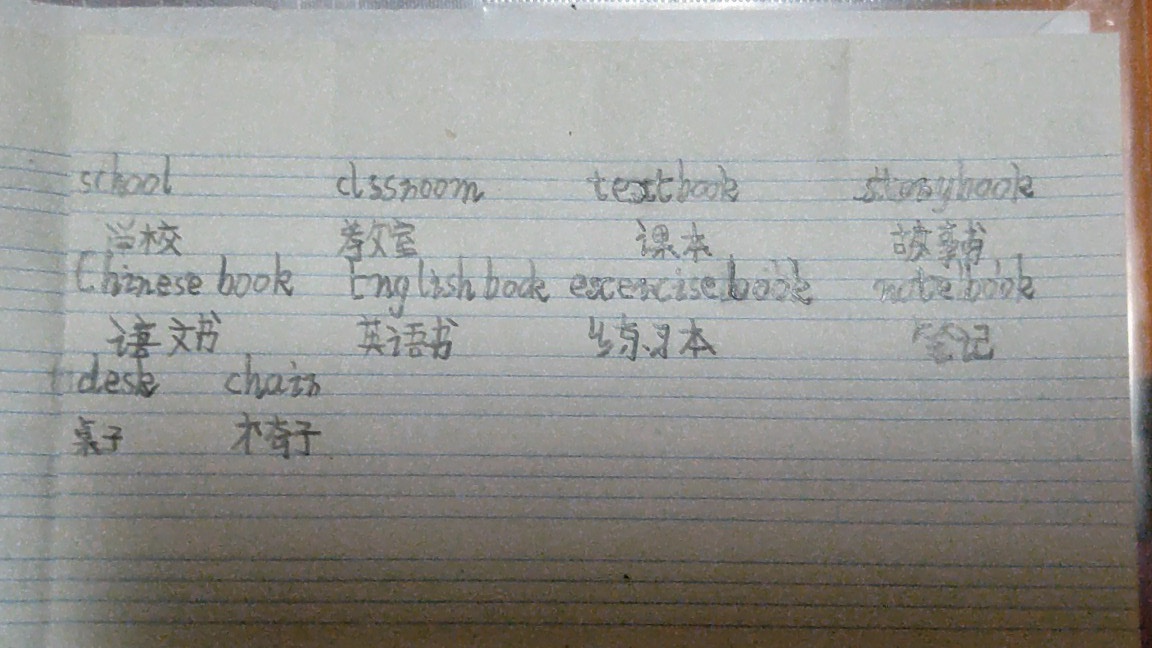 school clssroom textbook storybook
学校 教室 课本 故事书
Chinese book English book excercise book note book
语文书 英语书 练习本 笔记
desk chair
桌子 椅子